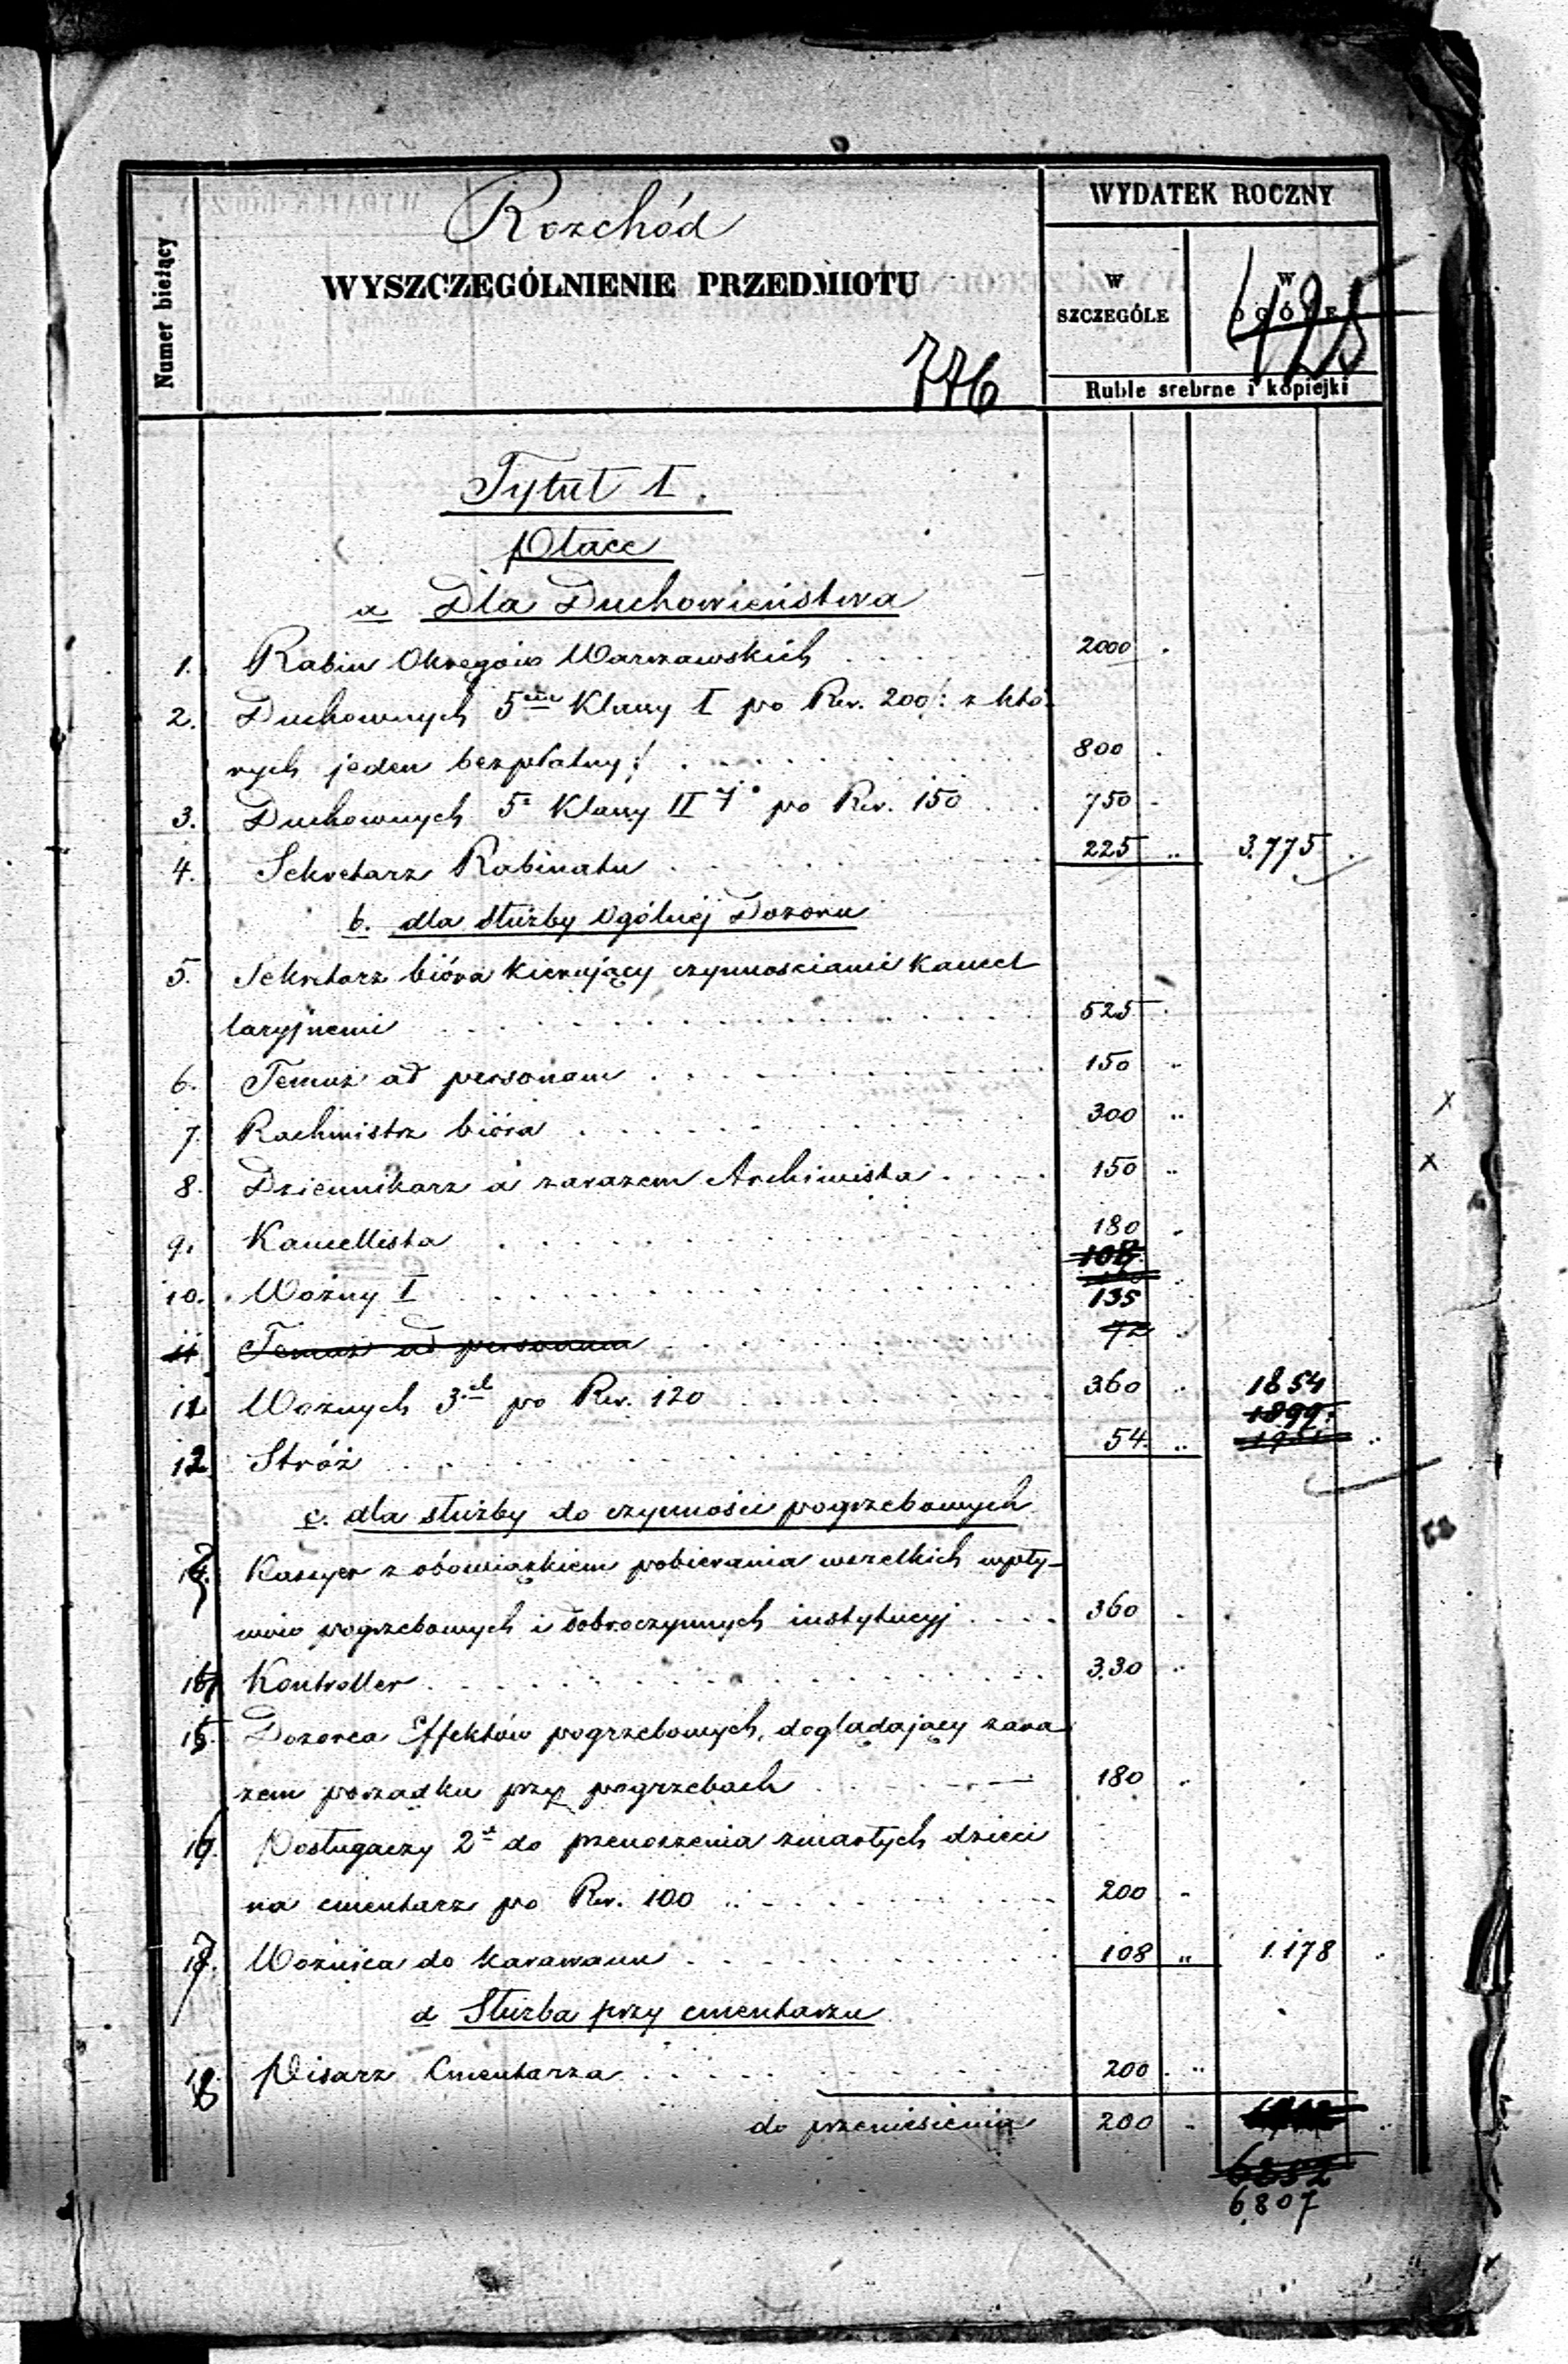 Numer bieżący
Rozchód
WYSZCZEGÓLNIENIE PRZEDMIOTU
776
WYDATEK ROCZNY
W SZCZEGÓLE
W OGÓLE
Ruble srebrne i kopiejki
Tytuł I.
Płace
a Dla Duchowieństwa
1. Rabin Okręgów Warszawskich 2000
2. Duchownych 5ciu Klassy I po Rsr. 200/: z któ-
rych jeden bezpłatny:/ 800
3. Duchownych 5 Klassy IIj po Rsr. 150 750
4. Sekretarz Rabinatu 225 3.775
b. dla służby Ogólnéj Dozoru
5. Sekretarz bióra kierujący czynnosciami kancel
laryjnemi 525
6. Temuż ad personam 150
7. Rachmistrz bióra 300
8. Dziennikarz a zarazem Archiwista 150
9. Kancellista 180
108
10. Woźny I 135
11 Temuż ad personam 72
11 Woźnych 3ch po Rsr. 120 360 1854
1899
12 Stróż 54
c. dla służby do czynności pogrzebowych
Kassyer z obowiązkiem pobierania wszelkich wpły-
wów pogrzebowych i dobroczynnych instytucyj 360
Kontroller 330
15 Dozorca Effektów pogrzebowych, doglądający zara
zem porządku przy pogrzebach 180
16 Posługaczy 2ch do przenoszenia zmarłych dzieci
na cmentarz po Rsr. 100 200
17. Woźnica do karawanu 108 1.178
d Służba przy cmentarzu
18 Pisarz Cmentarza 200
do przeniesienia 200
6852
6.807